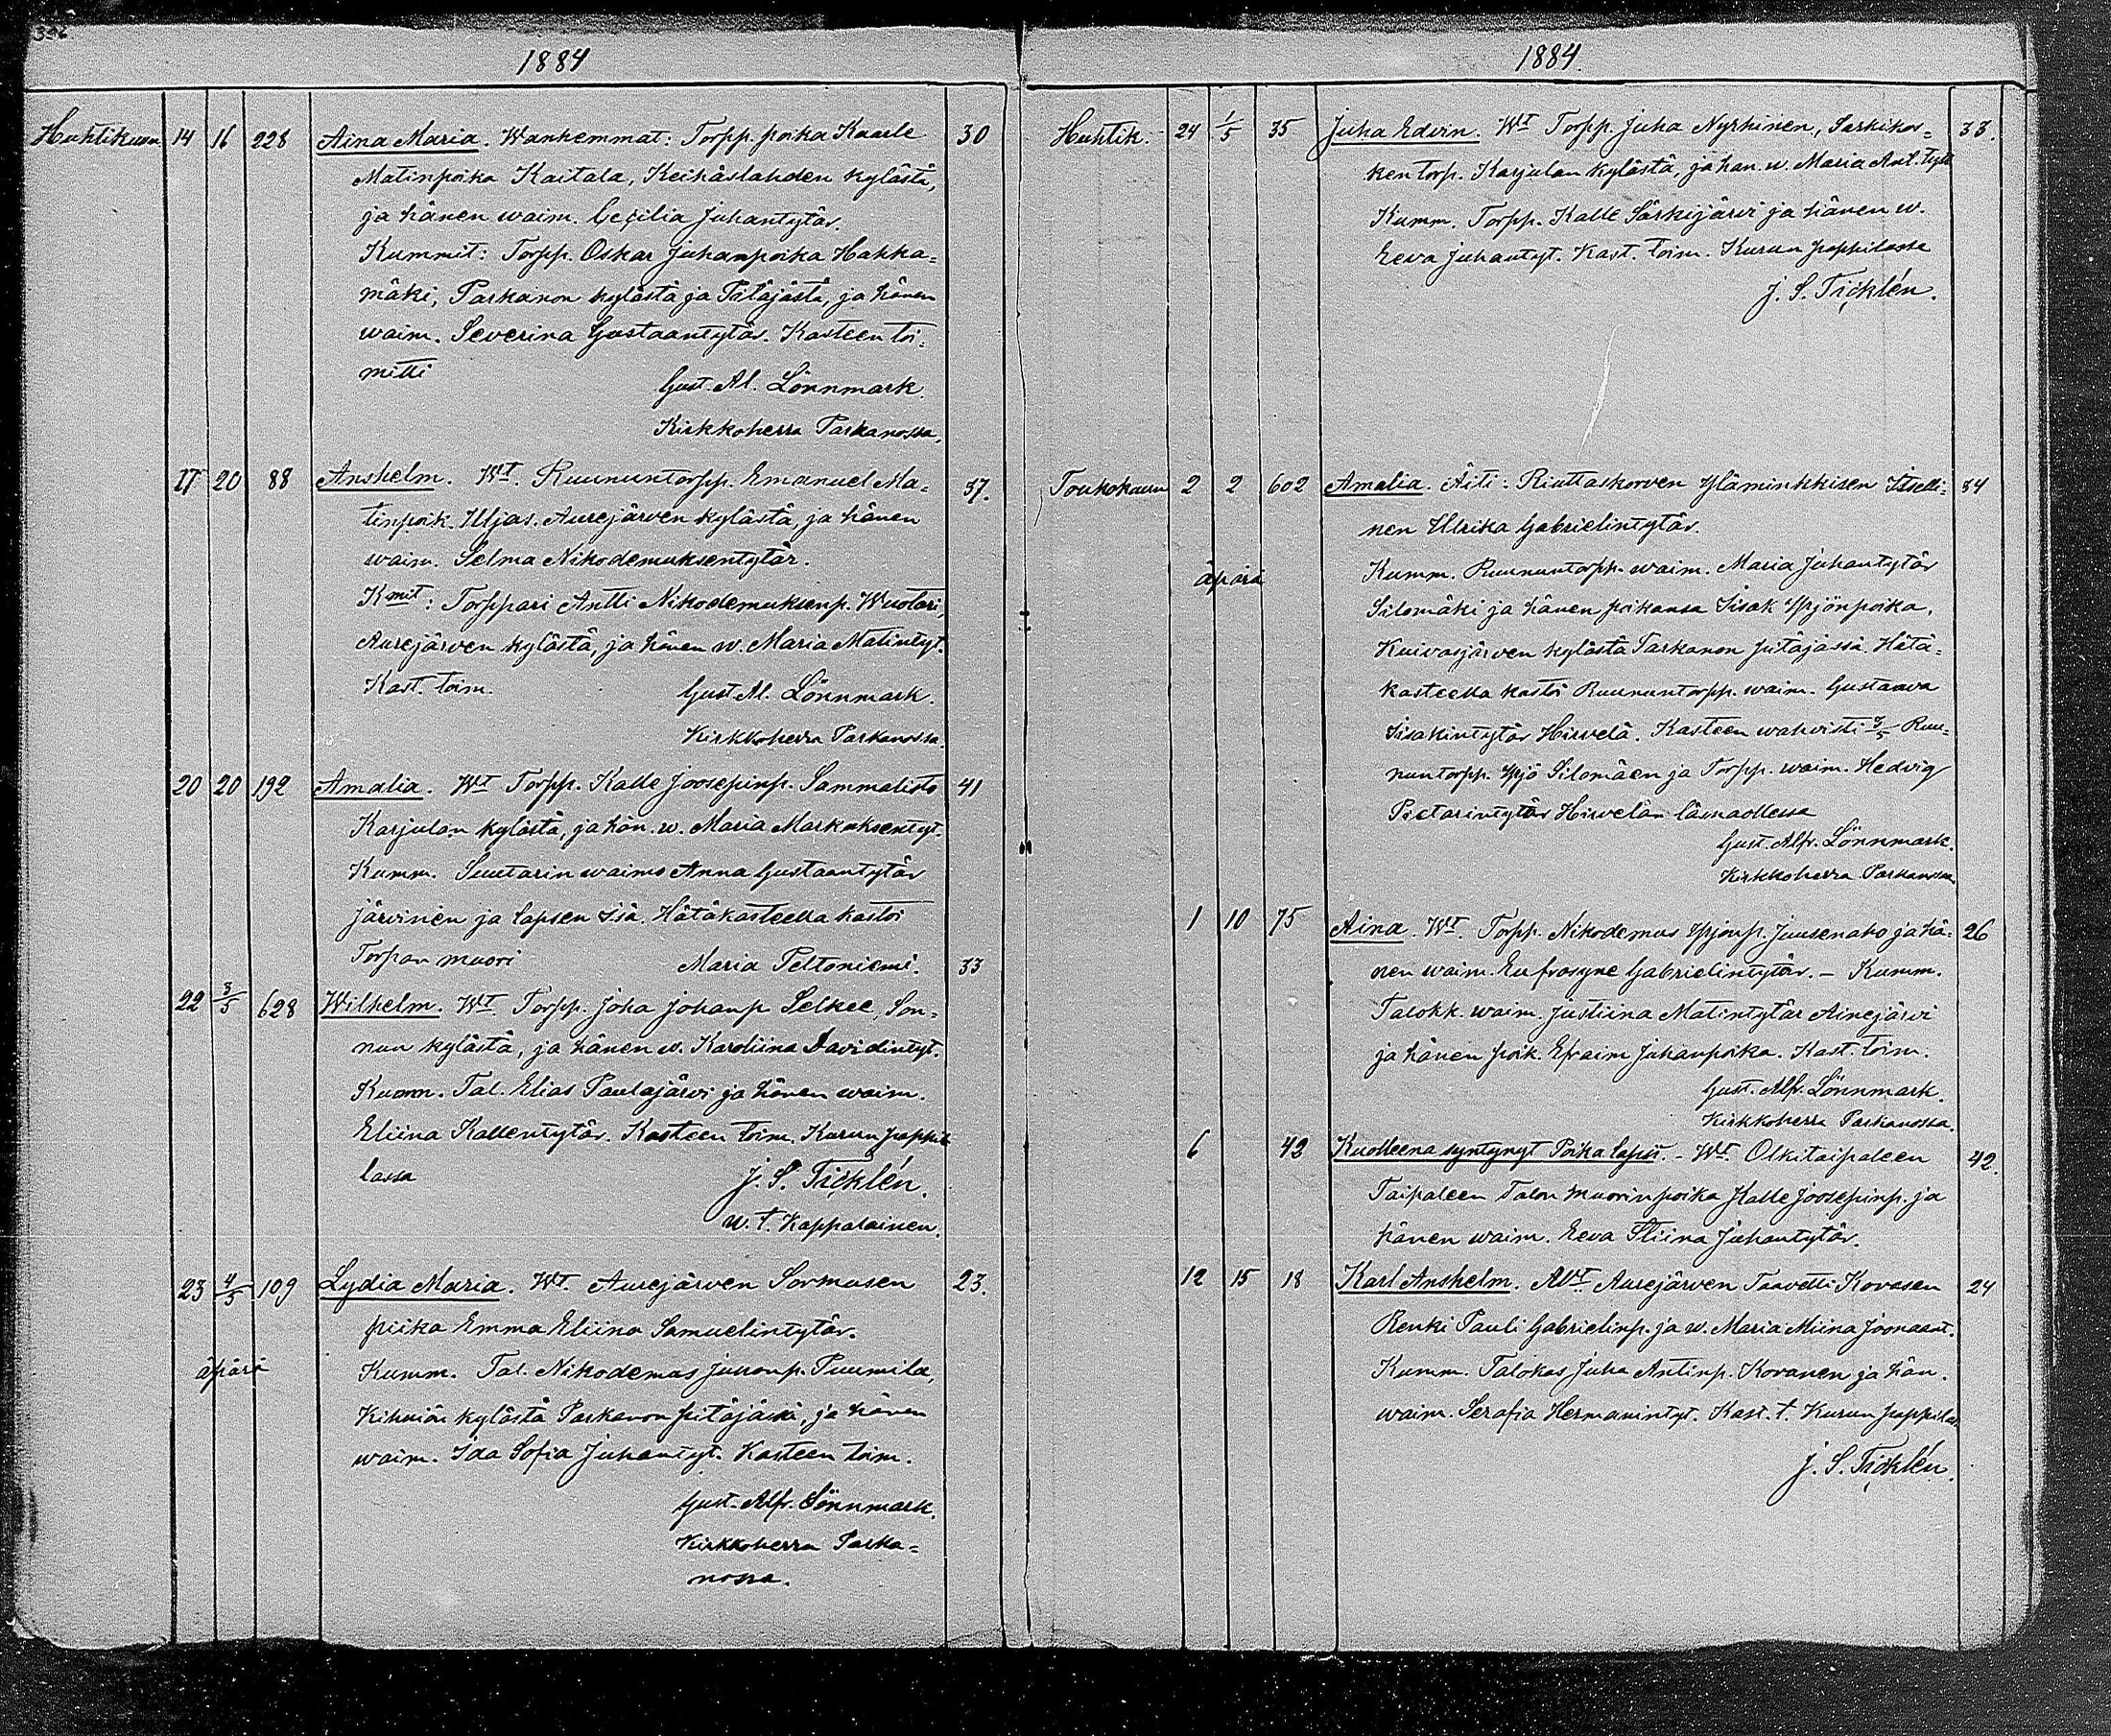 396
1884
Huhtikuun 14 16 228 Aina Maria. Wanhemmat: Torpp. poika Kaarle 30
Matinpoika Kaitala, Keihäslahden kylästä,
ja hänen waim. Cecilia Juhantytär.
Kummit: Torpp. Oskar Juhanpoika Hakka=
mäki, Parkanon kylästä ja Pitäjästä, ja hänen
waim. Severina Gustaantytär. Kasteen toi=
mitti
Gust. Al. Lönnmark.
Kirkkoherra Parkanossa.
17 20 88 Anshelm. Wt. Ruununtorpp. Emanuel Ma= 37.
tinpoik. Uljas. Aurejärven kylästä, ja hänen
waim. Selma Nikodemuksentytär.
Kmit: Torppari Antti Nikodemuksenp. Wuolari,
Aurejärven kylästä, ja hänen w. Maria Matintyt.
Kast. toim.
Gust Al. Lönnmark.
Kirkkoherra Parkanossa.
20 20 192 Amalia. Wt Torpp. Kalle Joosepinp. Sammalisto 41
Karjulan kylästä, ja hän. w. Maria Markuksentyt.
Kumm. Suutarin waimo Anna Gustaantytär
Järvinen ja lapsen isä. Hätäkasteella kastoi
Torpan muori Maria Peltoniemi. 33
22 3/5 628 Wilhelm. Wt. Torpp. Joha Johanp. Selkee, Son=
nun kylästä, ja hänen w. Karoliina Davidintyt.
Kumm. Tal. Elias Paulajärvi ja hänen waim.
Eliina Kallentytär. Kasteen toim. Kurun pappi
lassa J. S. Ticklén.
w. t. Kappalainen.
23 4/5 109 Lydia Maria. Wt. Aurejärven Sormusen 23.
piika Emma Eliina Samuelintytär.
äpärä Kumm. Tal. Nikodemus Juhonp. Puumila,
Kihniön kylästä Parkanon pitäjässä, ja hänen
waim. Ida Sofia Juhantyt. Kasteen toim.
Gust. Alfr. Lönnmark.
Kirkkoherra Parka=
nossa.
1884.
Huhtik. 24 1/5 35 Juha Edvin. Wt Torpp. Juha Nyrhinen, Särkikos= 33.
ken torp. Karjulan kylästä, ja han. w. Maria Ant. tyt
Kumm. Torpp. Kalle Särkijärvi ja hänen w.
Eeva Juhantyt. Kast. toim. Kurun pappilassa
J. S. Ticklén.
Toukokuun 2 2 602 Amalia. Äiti: Riuttaskorven Yläminkkisen Itselli= 34
nen Ulrika Gabrielintytär.
äpärä Kumm. Ruununtorpp. waim. Maria Juhantytär
Silomäki ja hänen poikansa Iisak Yrjönpoika,
Kuivasjärven kylästä Parkanon pitäjässä. Hätä=
kasteella kastoi Ruununtorpp. waim. Gustaava
Iisakintytär Hirvelä. Kasteen wahvisti 3/5 Ruu=
nuntorpp. Yrjö Silomäen ja Torpp. waim. Hedvig
Pietarintytär Hirvelän läsnäollessa
Gust. Alfr. Lönnmark.
Kirkkoherra Parkanossa
1 10 75 Aina. Wt. Torpp. Nikodemus Yrjönp. Juusenaho ja hä= 26
nen waim. Eufrosyne Gabrielintytär. – Kumm.
Talokk. waim. Justiina Matintytär Ainejärvi
ja hänen poik. Efraim Juhanpoika. Kast. toim.
Gust. Alfr. Lönnmark.
Kirkkoherra Parkanossa.
6 42 Kuolleena syntynyt Poika lapsi. – Wt. Olkitaipaleen 42.
Taipaleen Talon muorinpoika Kalle Joosepinp. ja
hänen waim. Eeva Stiina Juhantytär.
12 15 18 Karl Anshelm. Wt. Aurejärven Taavetti Kovasen 24
Renki Pauli Gabrielinp. ja w. Maria Miina Joonaant.
Kumm. Talokas Juha Antinp. Koranen ja hän.
waim. Serafia Hermanintyt. Kast. t. Kurun pappilas
J. S. Ticklén.